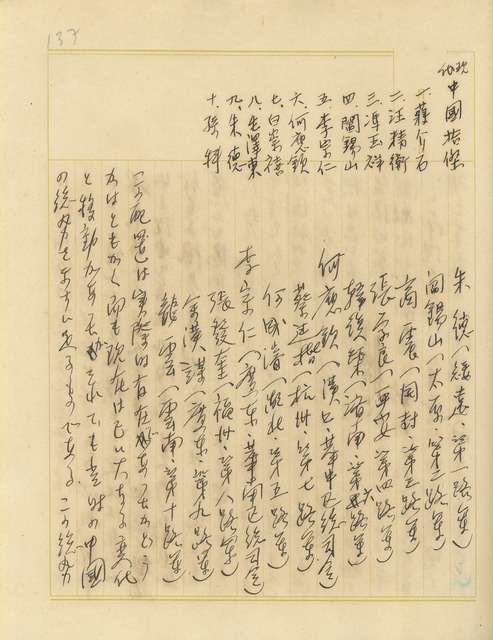 137
現代中國哲傑
一、蔣介石
二、汪精衛
三、馮玉祥
四、閻錫山
五、李宗仁
六、何應欽
七、白崇禧
八、毛澤東
九、朱德
十、孫科
朱德(綏遠・第一路軍)
閻錫山(太原・第二路軍)
商震(開封・第三路軍)
張學良(西安・第四路軍)
韓復榘(濟南・第六路軍)
何應欽(漢口・華中区總司令)
蔡廷楷(杭州・第七路軍)
何成濬(湖北・第五路軍)
李宗仁(廣東・華南区總司令)
張發奎(福州・第八路軍)
余漢謀(廣東・第九路軍)
龍雲(雲南・第十路軍)
この配置は実際的存在であつたかどう
かはともかく即も現在はもい大きな変化
と移動があるも それでも当時の中國
の総勢力を示すに足るものである。この総勢力